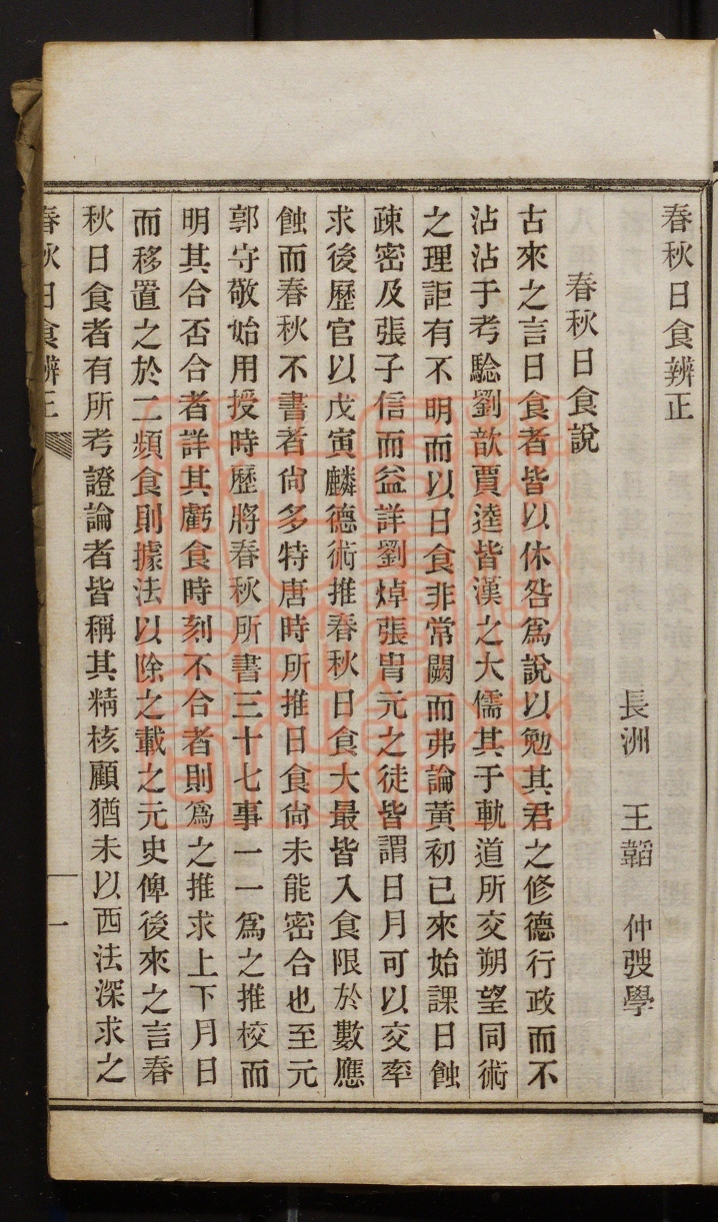 春秋日食辨正
長洲 王韜 仲弢學
春秋日食說
古來之言日食者皆以休咎爲說以勉其君之修德行政而不
沾沾于考驗劉歆賈逵皆漢之大儒其于軌道所交朔望同術
之理詎有不明而以日食非常闕而弗論黃初已來始課日蝕
疎密及張子信而益詳劉焯張胄元之徒皆謂日月可以交率
求後歷官以戊寅麟德術推春秋日食大最皆入食限於數應
蝕而春秋不書者尙多特唐時所推日食尙未能密合也至元
郭守敬始用授時歷將春秋所書三十七事一一爲之推校而
明其合否合者詳其虧食時刻不合者則爲之推求上下月日
而移置之於二頻食則據法以除之載之元史俾後來之言春
秋日食者有所考證論者皆稱其精核顧猶未以西法深求之
春秋日食辨正
一